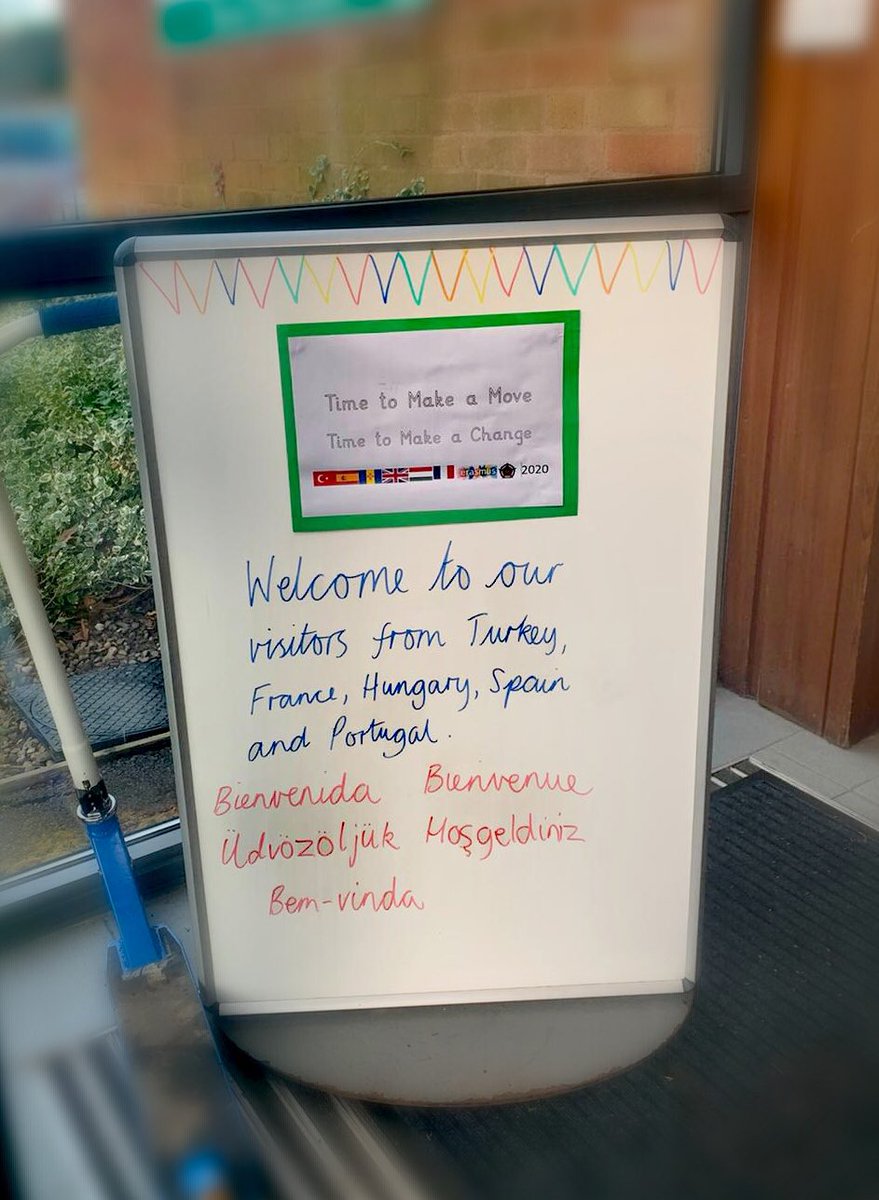 Time to Make a Move
Time to Make a Change
erasmus 2020
Welcome to our
visitors from Turkey,
France, Hungary, Spain
and Portugal.
Bienvenida Bienvenue
Üdvözöljük Hoşgeldiniz
Bem-vinda